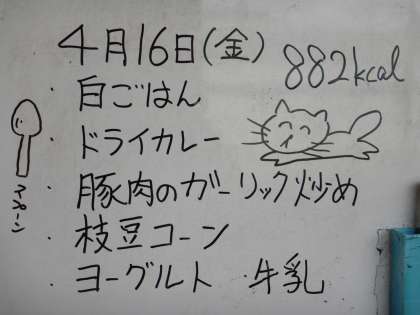 4月16日(金)
882kcal
・白ごはん
・ドライカレー
・豚肉のガーリック炒め
・枝豆コーン
・ヨーグルト 牛乳
スプーン